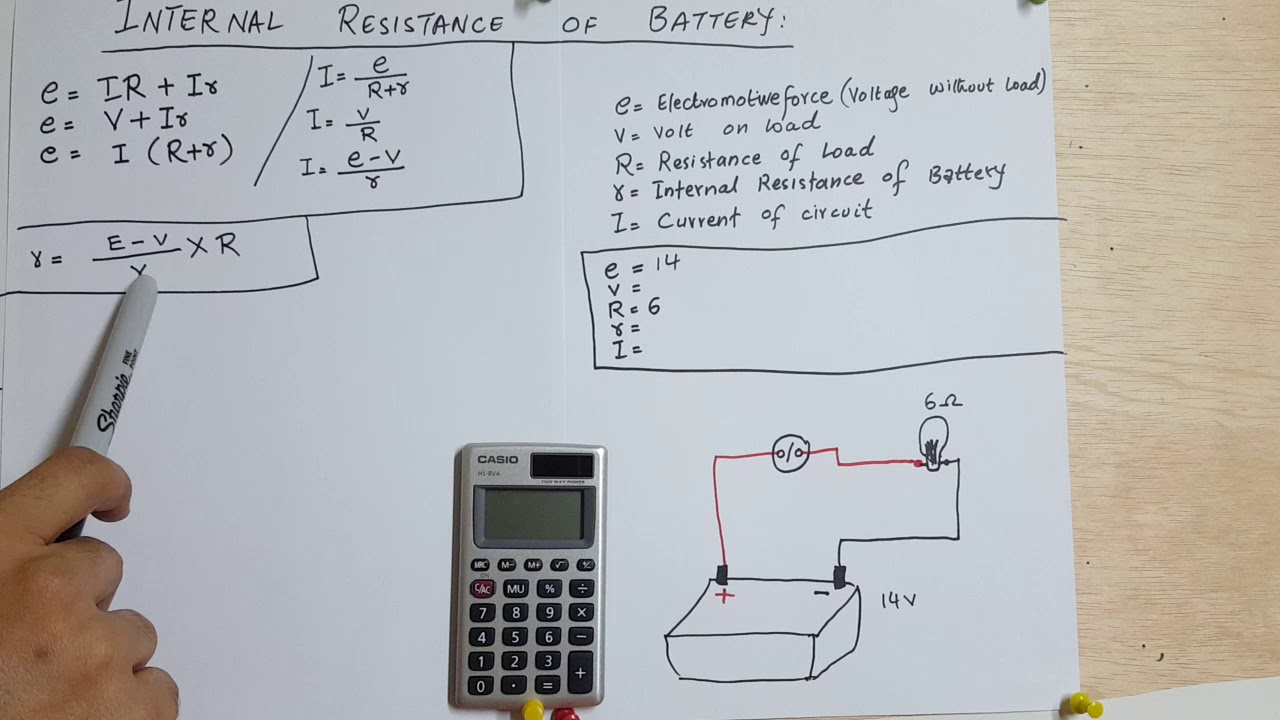 INTERNAL RESISTANCE OF BATTERY:
e = IR + Ir
e = V + Ir
e = I (R+r)
I = e / R+r
I = V / R
I = e-V / r
r = E-V / V × R
e = Electromotive force (Voltage without Load)
V = Volt on Load
R = Resistance of Load
r = Internal Resistance of Battery
I = Current of circuit
e = 14
V =
R = 6
r =
I =
6Ω
+ -
14V
Sharpie FINE POINT
CASIO
HS-8VA
TWO WAY POWER
MRC M- M+ √ +/-
ON
C/AC MU % ÷
7 8 9 ×
4 5 6 −
1 2 3 +
0 . =